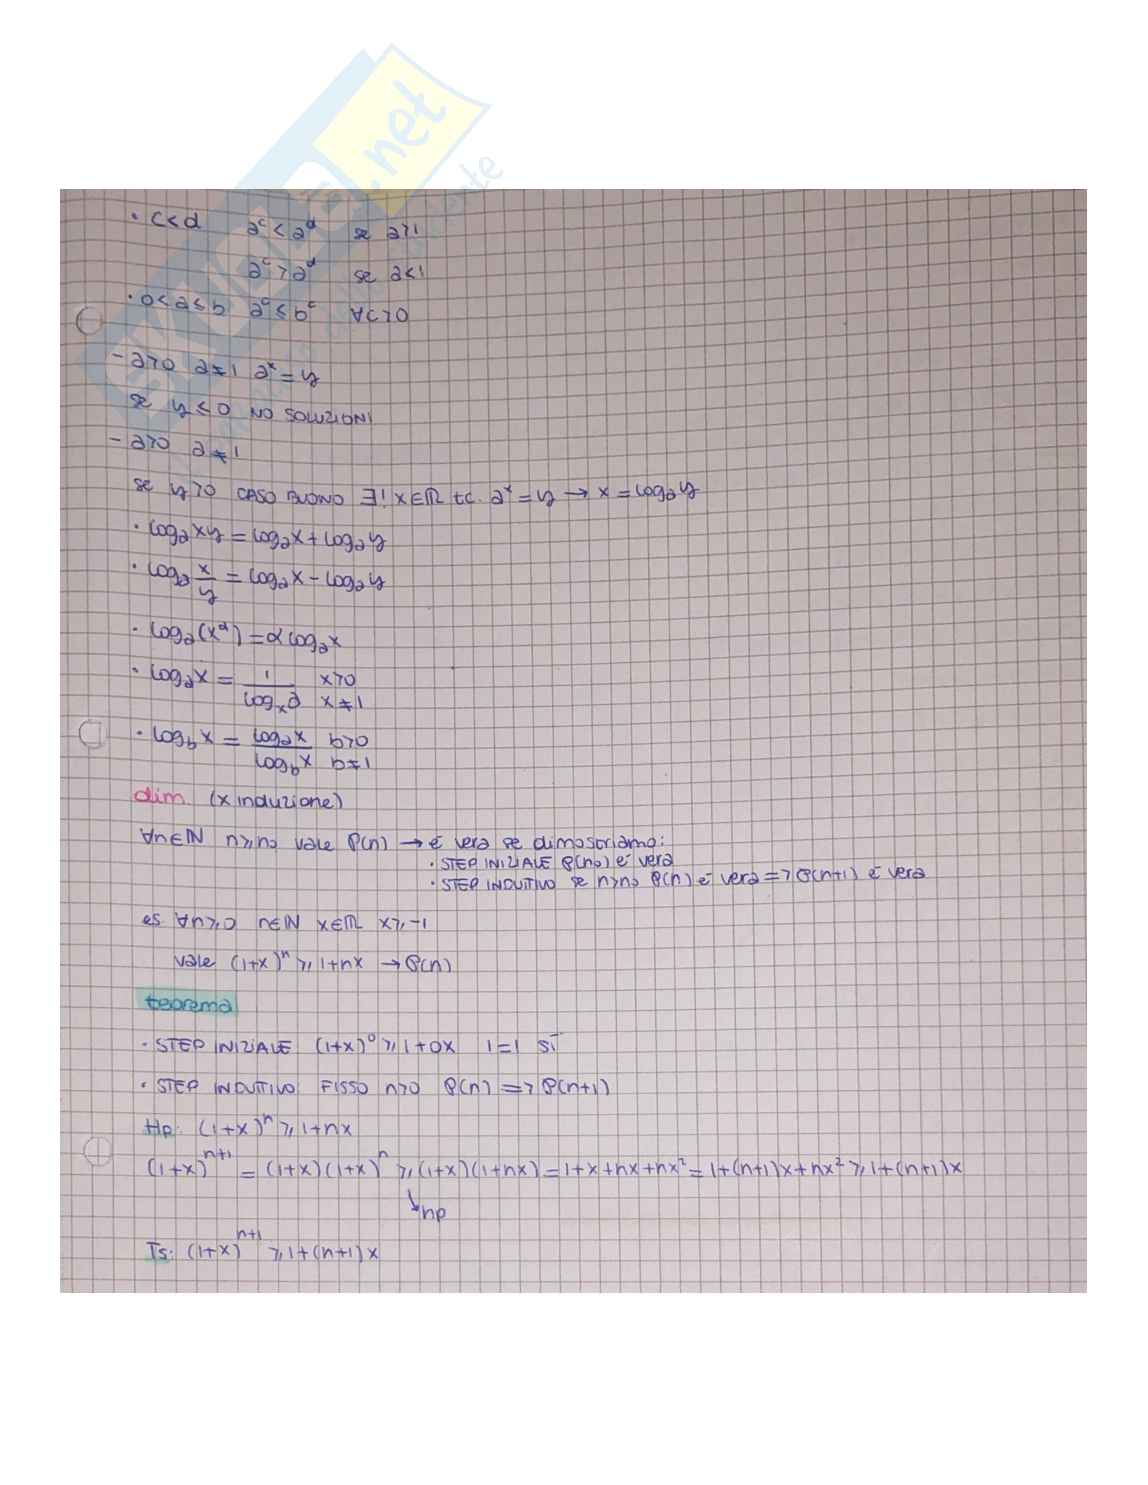 SKUOLA.net
• c<d a^c < a^d se a>1
a^c > a^d se a<1
• 0<a≤b a^c ≤ b^c ∀c>0
- a>0 a≠1 a^x = y
se y≤0 NO SOLUZIONI
- a>0 a≠1
se y>0 CASO BUONO ∃! x∈ℝ tc. a^x = y → x = log_a y
• log_a xy = log_a x + log_a y
• log_a x/y = log_a x - log_a y
• log_a (x^α) = α log_a x
• log_a x = 1/log_x a x>0 x≠1
• log_b x = log_a x/log_b x b>0 b≠1
dim (x induzione)
∀n∈ℕ n≥n0 vale P(n) → è vera se dimostriamo:
• STEP INIZIALE P(n0) è vera
• STEP INDUTIVO se n>n0 P(n) è vera => P(n+1) è vera
es ∀n≥0 n∈ℕ x∈ℝ x≥-1
vale (1+x)^n ≥ 1+nx → P(n)
teorema
• STEP INIZIALE (1+x)^0 ≥ 1+0x 1=1 sì
• STEP INDUTIVO FISSO n>0 P(n) => P(n+1)
Hp: (1+x)^n ≥ 1+nx
(1+x)^(n+1) = (1+x)(1+x)^n ≥ (1+x)(1+nx) = 1+x+nx+nx² = 1+(n+1)x+nx² ≥ 1+(n+1)x
↳ hp
Ts: (1+x)^(n+1) ≥ 1+(n+1)x